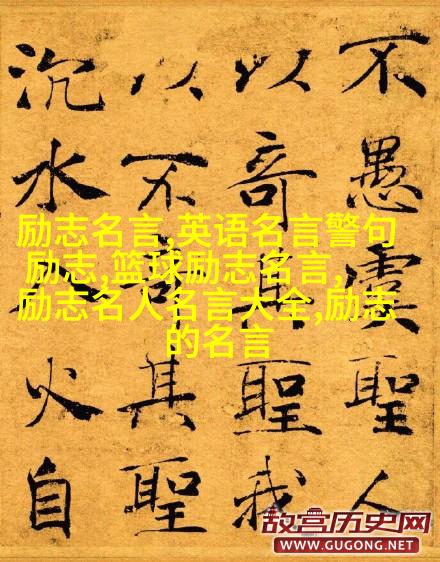 不愚虞聖人
以奇其聖我
以不奇其聖
沉水入火自
励志名言,英语名言警句
励志,篮球励志名言,
励志名人名言大全,励志
的名言
故宫历史网
WWW.GUGONG.NET